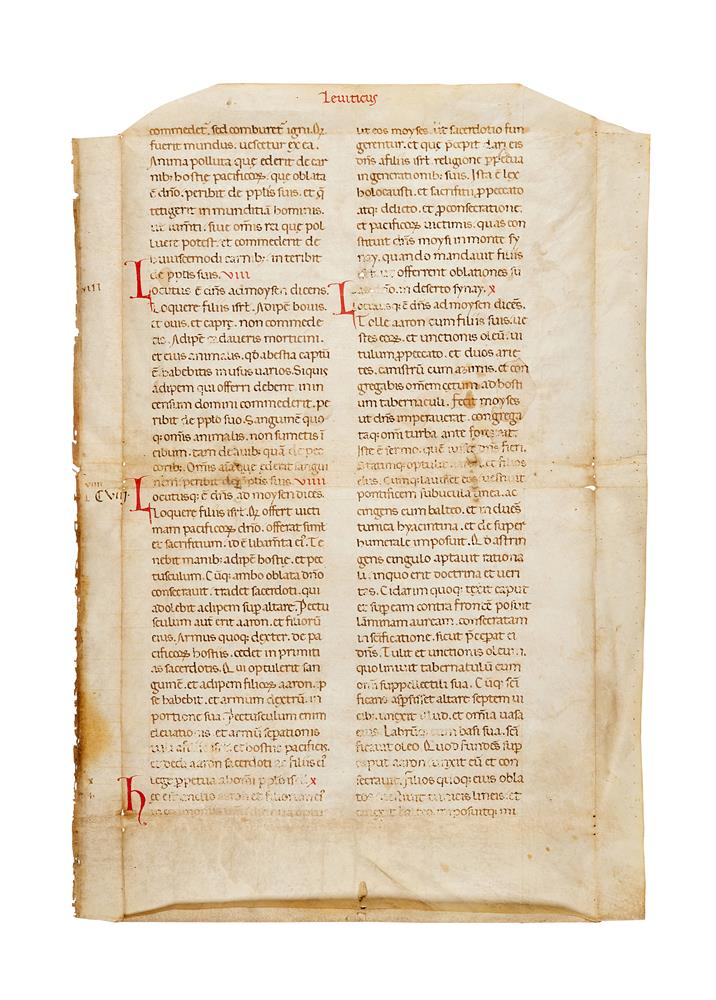 Leuiticus
commedet. sed comburet igni. Q
fuerit mundus. uescetur ex ea.
Anima polluta que ederit de car
nib; hostie pacificoꝝ. que oblata
ē dño. peribit de pplis suis. et q̄
tetigerit inmunditiā hominis.
uł iumti. siue omīs rei que pol
luere potest. et commederit de
huiuscemodi carnib; interibit
de pplis suis. VIII
Locutus ē dn̄s ad moysen dicens.
Loquere filiis isrł. Adipē bouis.
et ouis. et caprę. non commede
tis. Adipē cadaueris morticini.
et eius animalis. qđ a bestia captū
ē. habebitis in usus uarios. Siquis
adipem qui offerri debent in in
censum domini commederit. pe
ribit de pplo suo. Sanguinē quo
q; omīs animalis. non sumetis ī
cibum. tam de auib; quā de pec
corib; Omīs anima que ederit sangui
nem. peribit de pplis suis. VIIII
Locutusq; ē dn̄s ad moysen dicēs.
Loquere filiis isrł. Q offert uicti
mam pacificoꝝ dño. offerat simł
et sacrificium. id ē libamīta ei. Te
nebit manib; adipē hostię. et pec
tusculum. Cūq; ambo oblata dño
consecrauit. tradet sacerdoti. qui
adolebit adipem sup altare. Pectu
sculum aut erit aaron. et filiorū
eius. Armus quoq; dexter. de pa
cificoꝝ hostiis. cedet in primiti
as sacerdotis. Qui optulerit san
guinē. et adipem filioꝝ aaron. ip
se habebit. et armum dextrū. in
portione sua. Pectusculum enim
eleuationis. et armū sepationis
pacificis.
et dedi aaron sacerdoti ac filiis ei
lege ppetua ab omi pplo isrł. X
hec est unctio aaron et filiorum ei
ut eos moyses. ut sacerdotio fun
gerentur. et que p̄cepit dari eis
dn̄s a filiis isrł. religione ppetua
in generationib; suis. Ista ē lex
holocausti. et sacrificii. p peccato
atq; delicto. et p consecratione.
et pacificoꝝ uictimis. quas con
stituit dn̄s moysi in monte sy
nay. quando mandauit filiis
isrł. ut offerrent oblationes su
as dño. in deserto synay. X
Locutusq; ē dn̄s ad moysen dicēs.
Tolle aaron cum filiis suis. ue
stes eoꝝ. et unctionis oleū. ui
tulum p peccato. et duos arie
tes. canistrū cum azimis. et con
gregabis omēm cetum. ad hosti
um tabernaculi. Fecit moyses
ut dn̄s imperauerat. congrega
taq; omī turba ante fores. ait.
Iste ē sermo. quē iussit dn̄s fieri.
Statimq; optulit aaron. et filios
eius. Cumq; lauisset eos. uestiuit
pontificem subucula linea. ac
cingens eum balteo. et induēs
tunica hyacintina. et de super
humerale imposuit. Qd astrin
gens cingulo aptauit rationa
li. in quo erit doctrina et ueri
tas. Cidarim quoq; texit caput
et sup eam contra frontē posuit
lāminam auream. consecratam
in scificatione. sicut p̄cepat ei
dn̄s. Tulit et unctionis oleum.
quo liniuit tabernaculū cum
omi suppellectili sua. Cūq; scī
ficans aspsisset altare septem ui
cib; unxit illud. et omīa uasa
eius. Labrūq; cum basi sua. scī
ficauit oleo. Quod fundēs sup
caput aaron unxit eū et con
secrauit. filios quoq; eius obla
tos uestiuit tunicis lineis. et
VIII
VIIII
CVIIJ
X